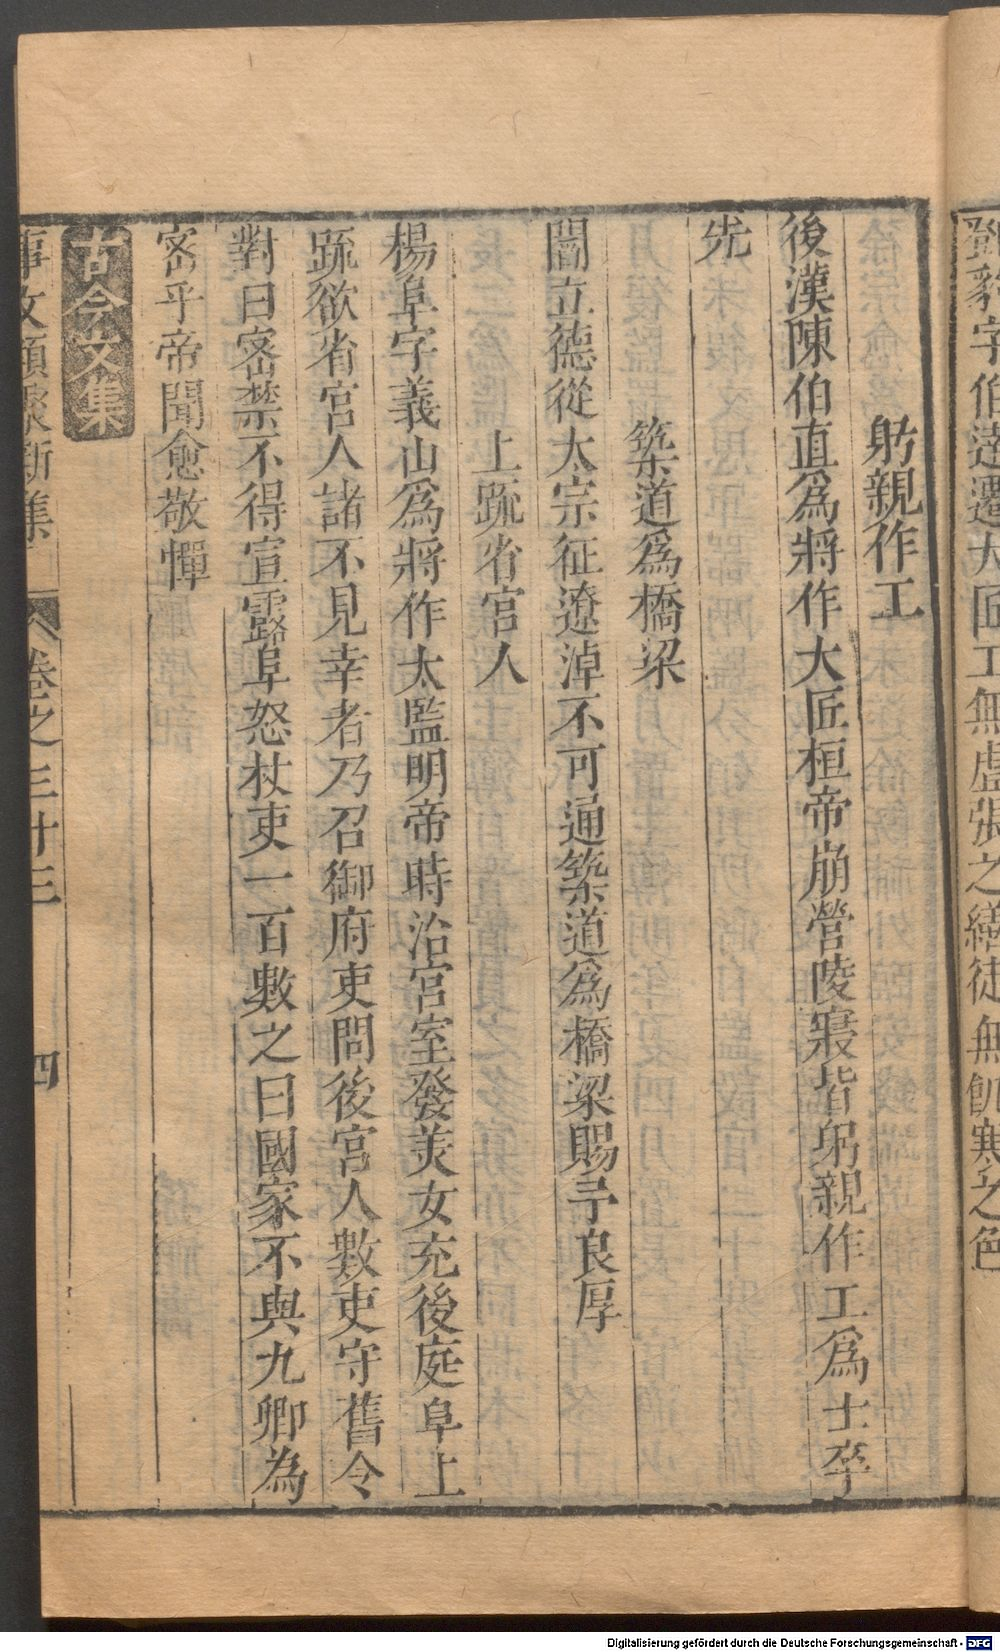 鄧豹字伯達遷大匠工無虛張之繕徒無飢寒之色
躬親作工
後漢陳伯直爲將作大匠桓帝崩營陵寢皆躬親作工爲士卒
先
築道爲橋梁
閻立德從太宗征遼淖不可通築道爲橋梁賜予良厚
上疏省宮人
楊阜字義山爲將作太監明帝時治宮室發美女充後庭阜上
疏欲省宮人諸不見幸者乃召御府吏問後宮人數吏守舊令
對曰宻禁不得宣露阜怒杖吏一百數之曰國家不與九卿為
宻乎帝聞愈敬憚
古今文集
事文類聚新集 卷之三十三 四
Digitalisierung gefördert durch die Deutsche Forschungsgemeinschaft - DFG